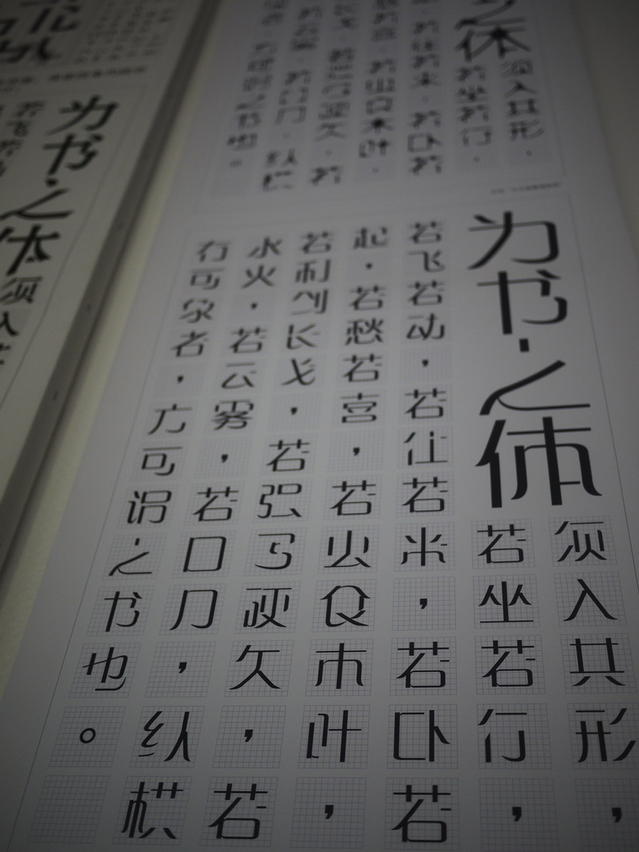 之体
须入其形，
若坐若行，
若往若来，若卧若
若喜，若虫食木叶，
长戈，若强弓硬矢，若
若云雾，若日月，纵横
者，方可谓之书也。
为书之体
须入
若飞若
为书之体
须入其形，
若坐若行，
若飞若动，若往若来，若卧若
起，若愁若喜，若虫食木叶，
若利剑长戈，若强弓硬矢，若
水火，若云雾，若日月，纵横
有可象者，方可谓之书也。